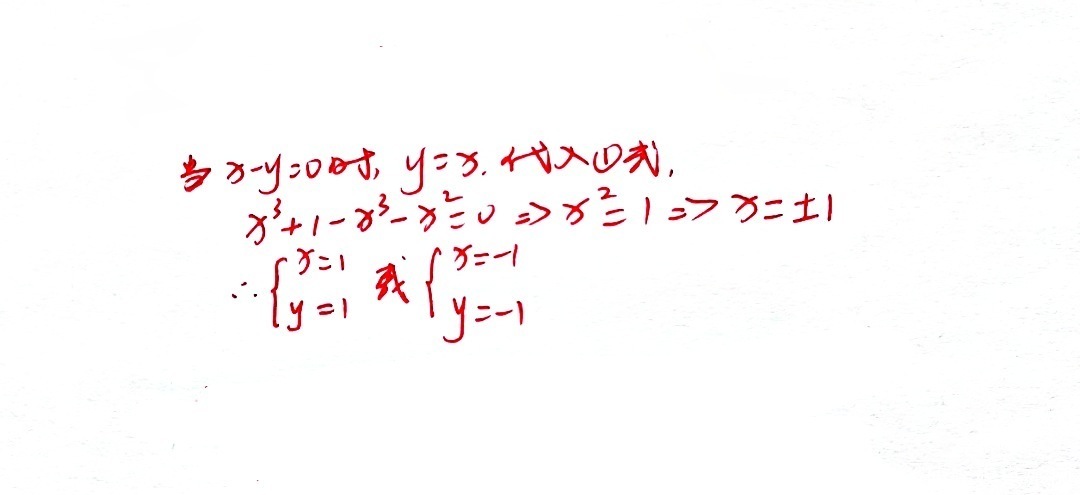 当 x-y=0时, y=x. 代入①式,
x³+1-x³-x²=0 => x²=1 => x=±1
∴ {x=1 或 {x=-1
y=1 y=-1